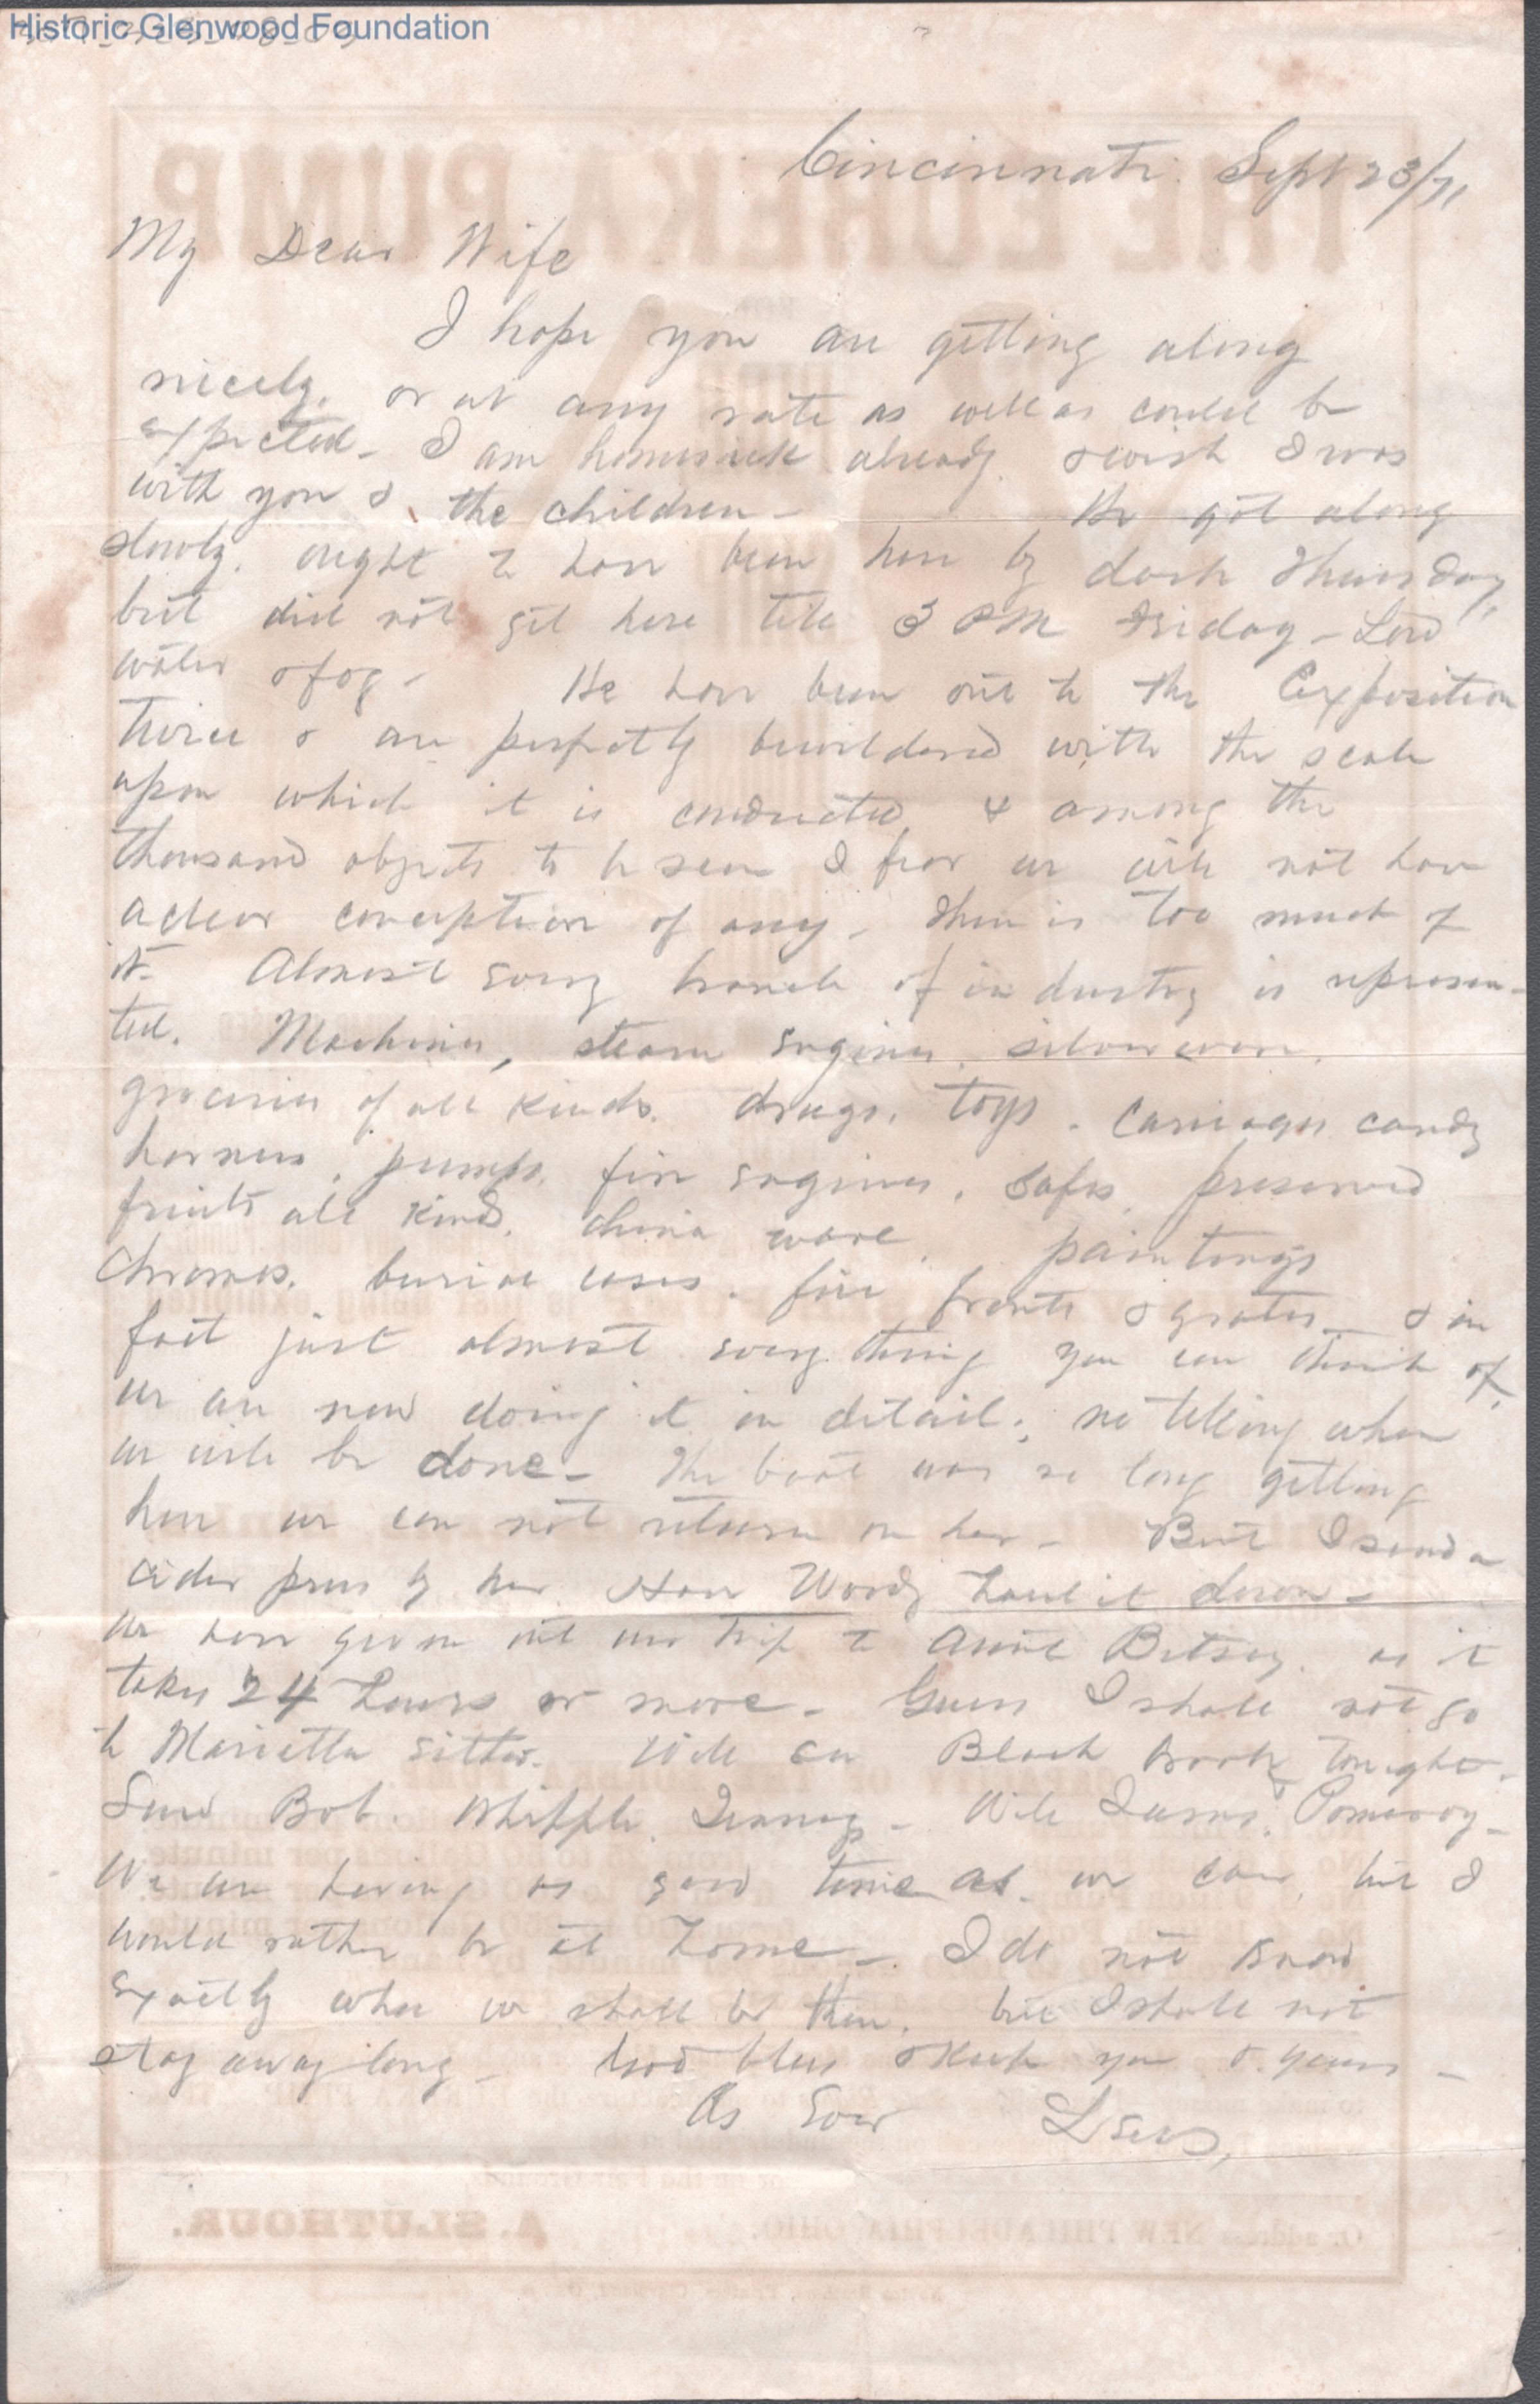 Historic Glenwood Foundation
Cincinnati. Sept 23/71
My Dear Wife
I hope you are getting along
nicely. or at any rate as well as could be
expected - I am homesick already. & wish I was
with you & the children - We got along
slowly. ought to have been here by dark Thursday,
but did not get here till 3 PM Friday - Low
water & fog - We have been out to the Exposition
twice & are perfectly bewildered with the scale
upon which it is conducted & among the
thousand objects to be seen I fear we will not have
a clear conception of any - There is too much of
it - Almost every branch of industry is represen-
ted. Machinery, steam engines, silverware,
groceries of all kinds. drugs. toys. Carriages candy
harness, pumps, fire engines, safes, preserved
fruits all kinds, china ware, paintings
Chromos. burial cases. fire fronts & grates - & in
fact just almost every thing you can think of,
we are now doing it in detail; no telling when
we will be done - The boat was so long getting
here we can not return on her - But I send a
cider press by her. Have Woody haul it down -
we have given out our trip to Aunt Betsey. as it
takes 24 hours or more - Guess I shall not go
to Marietta either. Will see Black Crook tonight -
Saw Bob. Whipple. - Will Pomeroy -
We are having as good time as we can, but I
would rather be at home - I do not know
exactly when we shall be there, but I shall not
stay away long - God bless & keep you & yours -
As Ever Lewis,
THE EUREKA PUMP
Or address NEW PHILADELPHIA OHIO. A. SLUTHOUR.